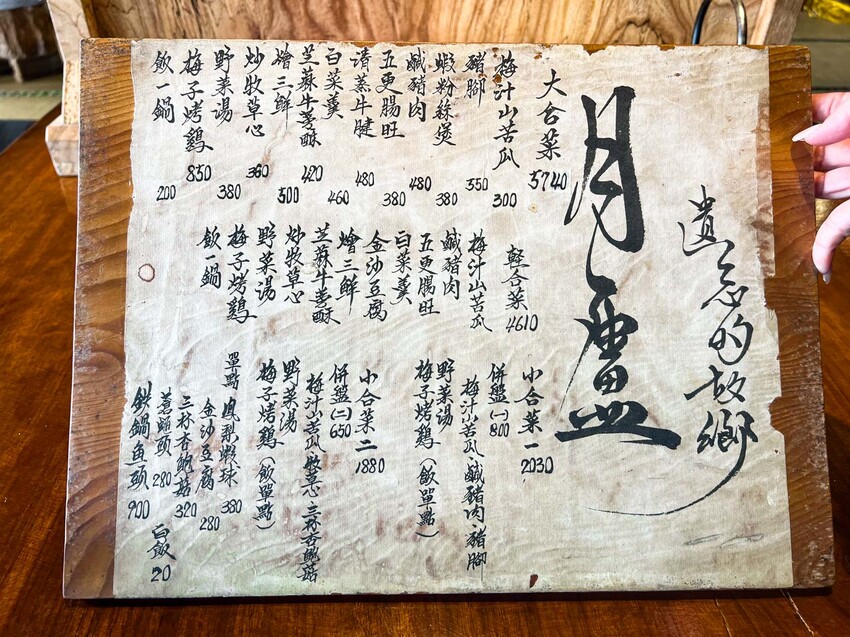 遺忘的故鄉
月廬
大合菜 5740
梅汁山苦瓜 300
豬腳 550
蝦粉絲煲 380
鹹豬肉 480
五更腸旺 380
清蒸牛腱 480
白菜羹 460
芝蔴牛蒡酥 420
燴三鮮 500
炒牧草心 360
野菜湯 380
梅子烤鷄 850
飯一鍋 200
輕合菜 4610
梅汁山苦瓜
鹹豬肉
五更腸旺
白菜羹
金沙豆腐
燴三鮮
芝蔴牛蒡酥
炒牧草心
野菜湯
梅子烤鷄
飯一鍋
小合菜一 2030
併盤(一) 800
梅汁山苦瓜、鹹豬肉、豬腳
野菜湯
梅子烤鷄(飯單點)
小合菜二 1880
併盤(二) 650
梅汁山苦瓜、牧草心、三杯杏鮑菇
野菜湯
梅子烤鷄(飯單點)
單點 鳳梨蝦球 380
金沙豆腐 280
三杯杏鮑菇 320
蔥蠣頭 280
鉄鍋魚頭 900
白飯 20